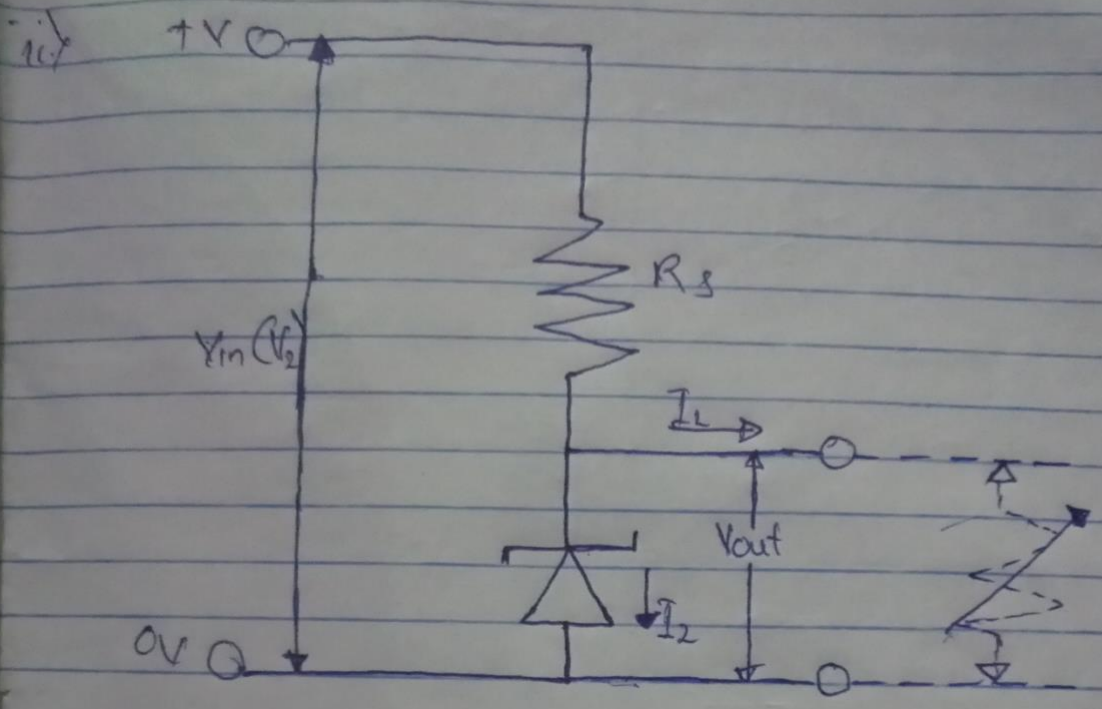 ii)
+V
Rs
Vin (V2)
IL
Vout
I2
0V